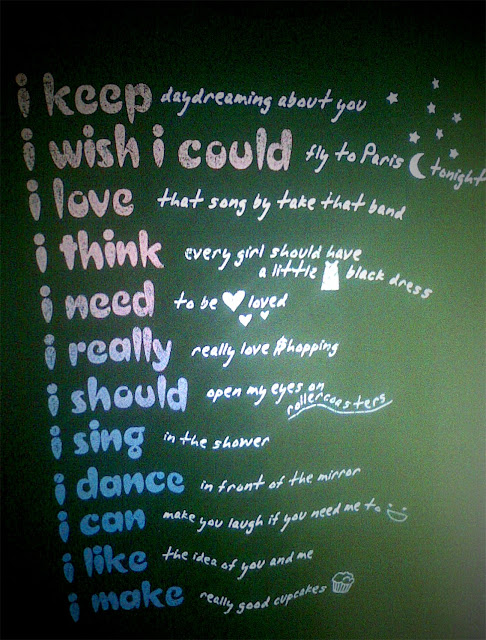 i keep daydreaming about you
i wish i could fly to Paris tonight
i love that song by take that band
i think every girl should have
a little black dress
i need to be loved
i really really love $hopping
i should open my eyes on
rollercoasters
i sing in the shower
i dance in front of the mirror
i can make you laugh if you need me to
i like the idea of you and me
i make really good cupcakes